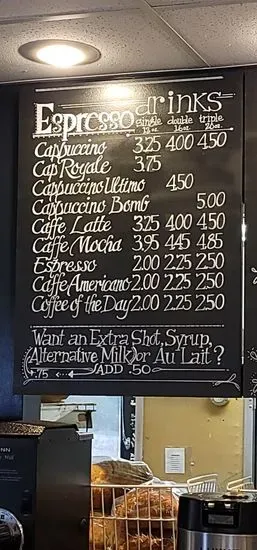 Espresso drinks
single double triple
12 oz 16 oz 20 oz
Cappuccino 3.25 4.00 4.50
Cap Royale 3.75
Cappuccino Ultimo 4.50
Cappuccino Bomb 5.00
Caffe Latte 3.25 4.00 4.50
Caffe Mocha 3.95 4.45 4.85
Espresso 2.00 2.25 2.50
Caffe Americano 2.00 2.25 2.50
Coffee of the Day 2.00 2.25 2.50
Want an Extra Shot, Syrup,
(Alternative Milk) or Au Lait?
+.75 ADD .50